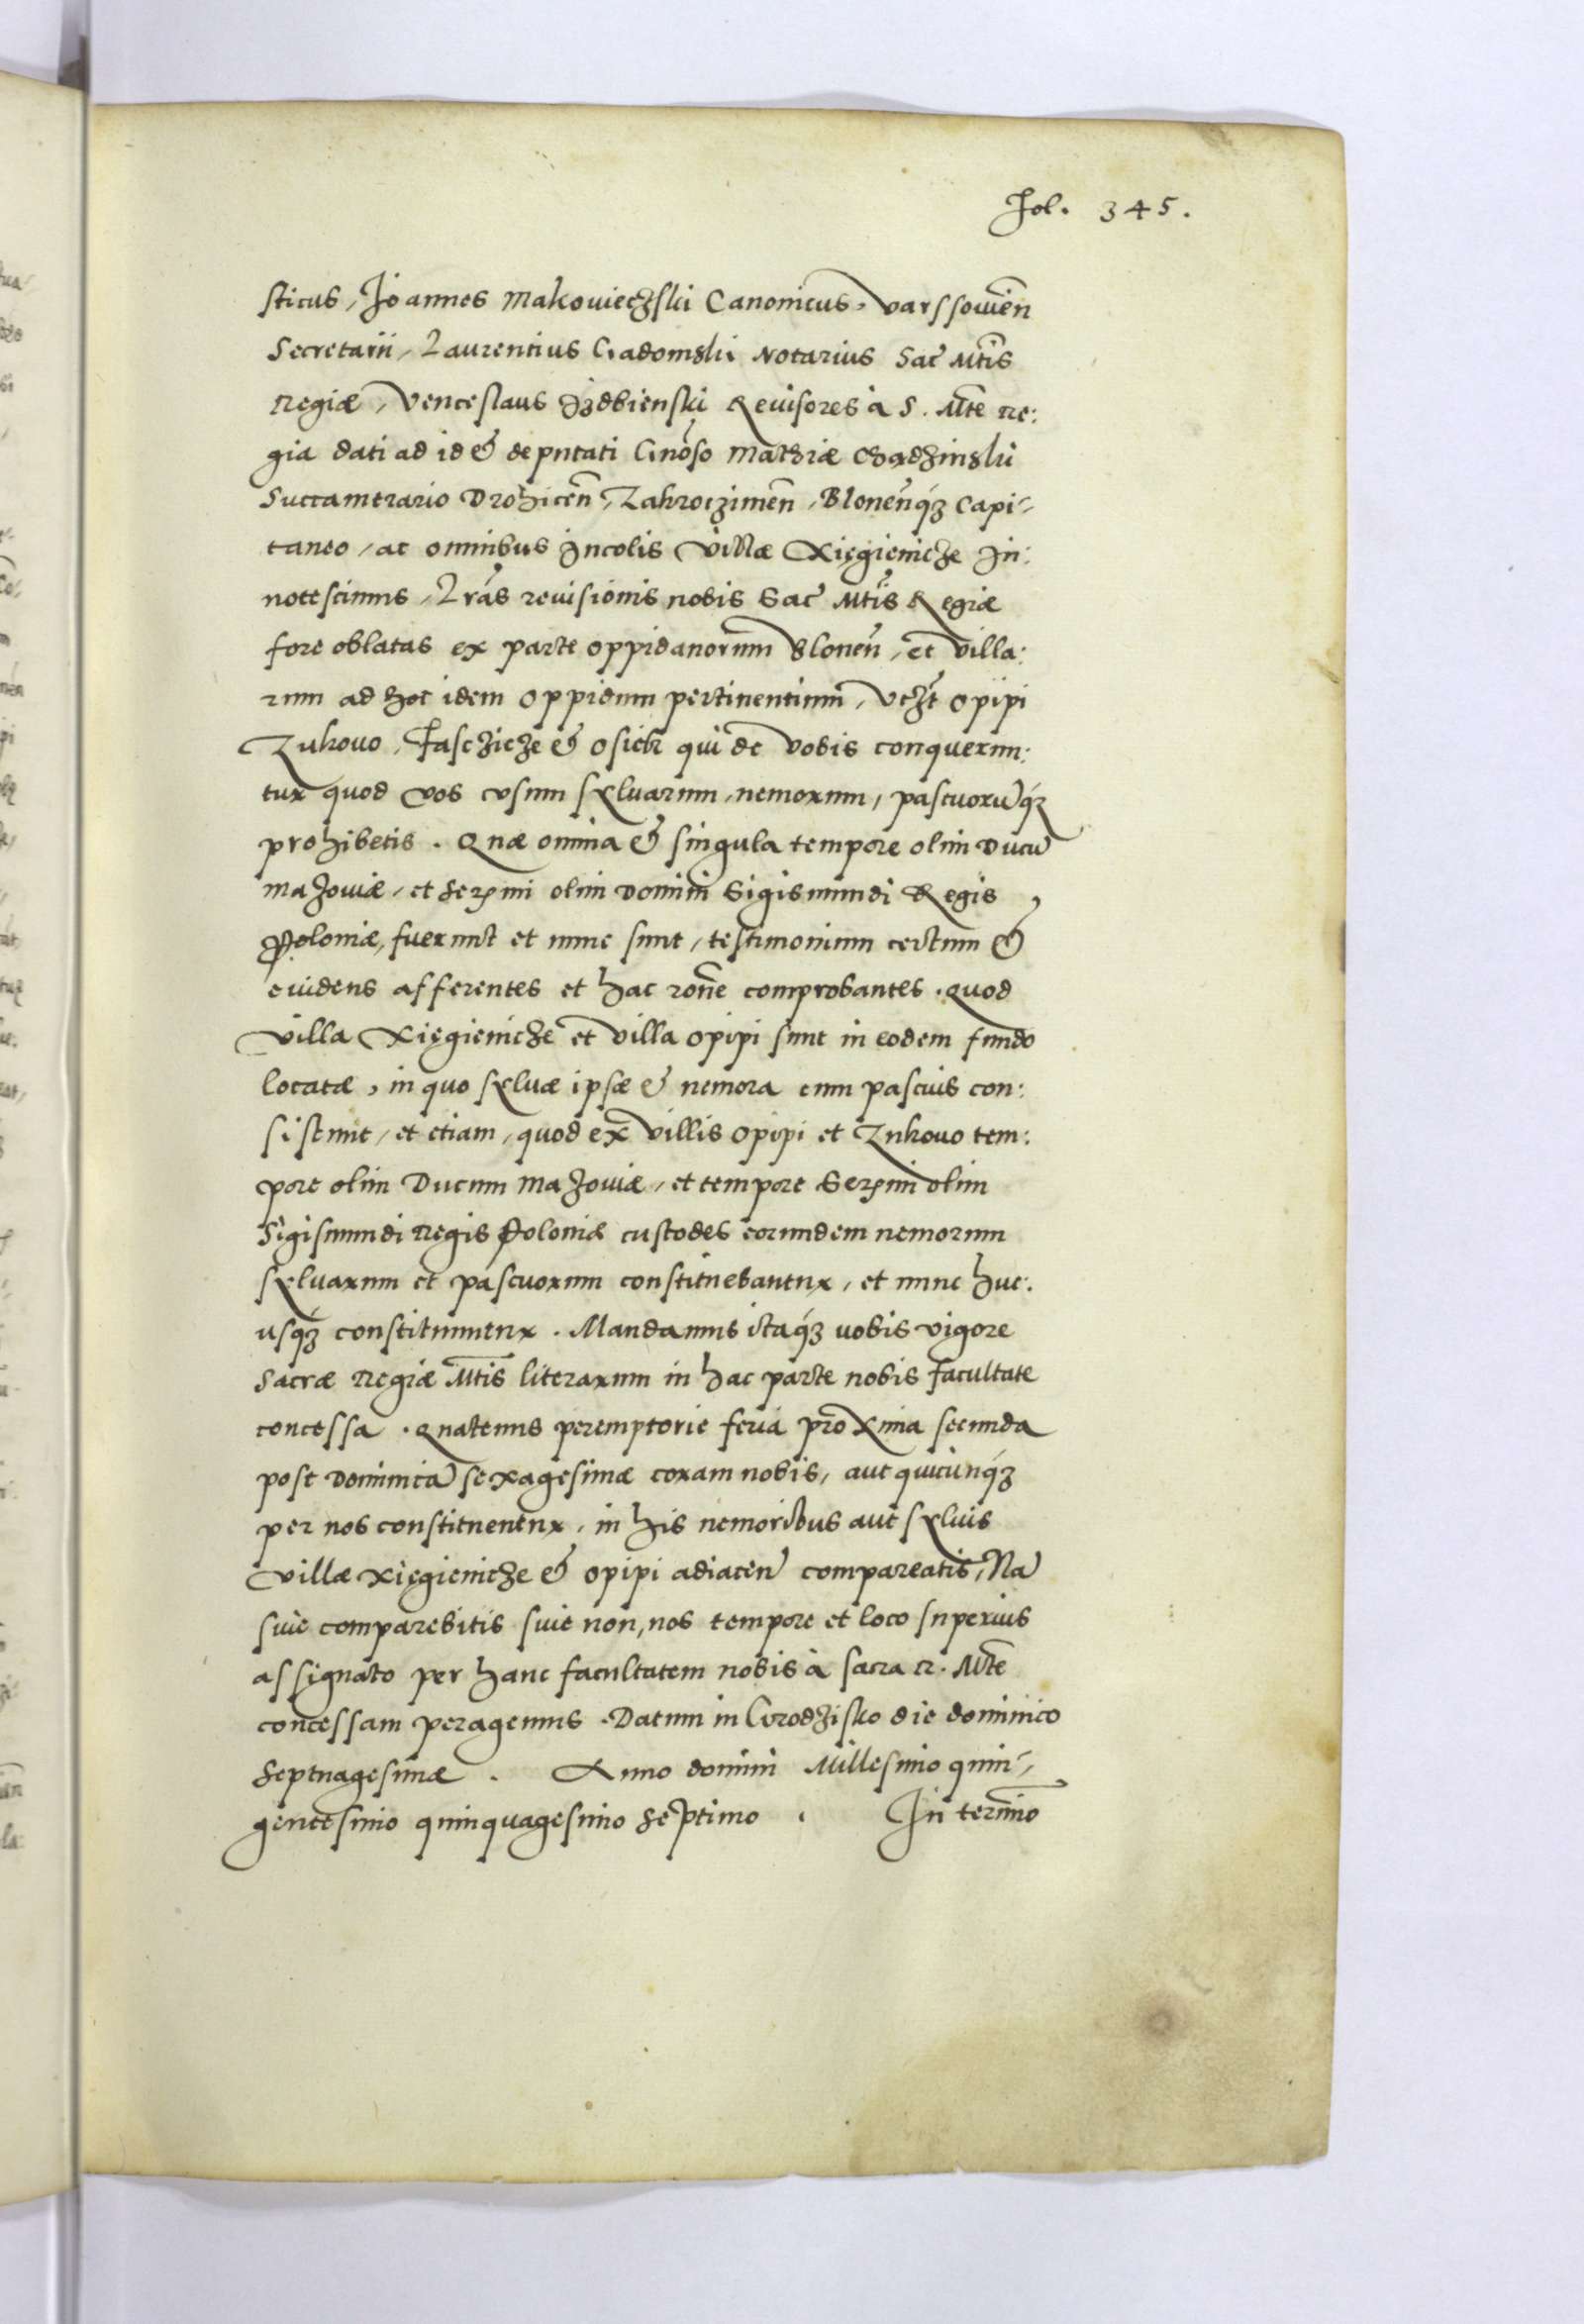 Fol. 345.
sticus, Joannes Makowieczski Canonicus, Varssowien̄
Secretarii, Laurentius Gadomski Notarius Sac̄ Mt̄is
Regiæ, Venceslaus Izdbienski Reuisores à S. Mt̄e Re:
gia dati ad id & deputati Gn̄oso Mathiæ Chądzinskii
Succamerario Drohicen̄, Zakroczimen̄, Blonen̄q́ꝫ Capi-
taneo, ac omnibus Incolis Villæ Xięgienicze In:
notescimus, Lr̄as reuisionis nobis Sac̄ Mt̄is Regiæ
fore oblatas ex parte oppidanorum Blonen̄, et Villa:
rum ad hoc idem oppidum pertinentium, Vtꝫt̄ Opipi
Zukowo, Fasczicze & Osiek qui de Vobis conquerun:
tur quod vos vsum syluarum, nemorum, pascuorū q́ꝫ
prohibetis. Quæ omnia & singula tempore olim Ducū
Mazouiæ, et Serx̄mi olim Domini Sigismundi Regis
Poloniæ, fuerunt et nunc sunt, testimonium certum &
euidens afferentes et hac ron̄e comprobantes. Quod
Villa Xięgienicze et Villa Opipi sunt in eodem fundo
locatæ, in quo syluæ ipsæ & nemora cum pascuis con:
sistunt, et etiam, quod ex Villis Opipi et Zukowo tem:
pore olim Ducum Mazouiæ, et tempore Serx̄mi olim
Sigismundi Regis Poloniæ custodes eorundem nemorum
syluarum et pascuorum constituebantur, et nunc huc.
usq́ꝫ constituuntur. Mandamus itaq́ꝫ uobis vigore
Sacræ Regiæ Mt̄is literarum in hac parte nobis facultate
concessa. Quatenus peremptorie feria proxima secunda
post Dominicā sexagesimæ coram nobis, aut quicunq́ꝫ
per nos constituentur, in his nemoribus aut syluis
Villæ Xięgienicze & Opipi adiacen̄ compareatis, Nā
siue comparebitis siue non, nos tempore et loco superius
assignato per hanc facultatem nobis à sacra R. Mt̄e
concessam peragemus. Datum in Grodzisko die dominico
Septuagesimæ. Anno domini Millesimo quin-
gentesimo quinquagesimo septimo. In termino